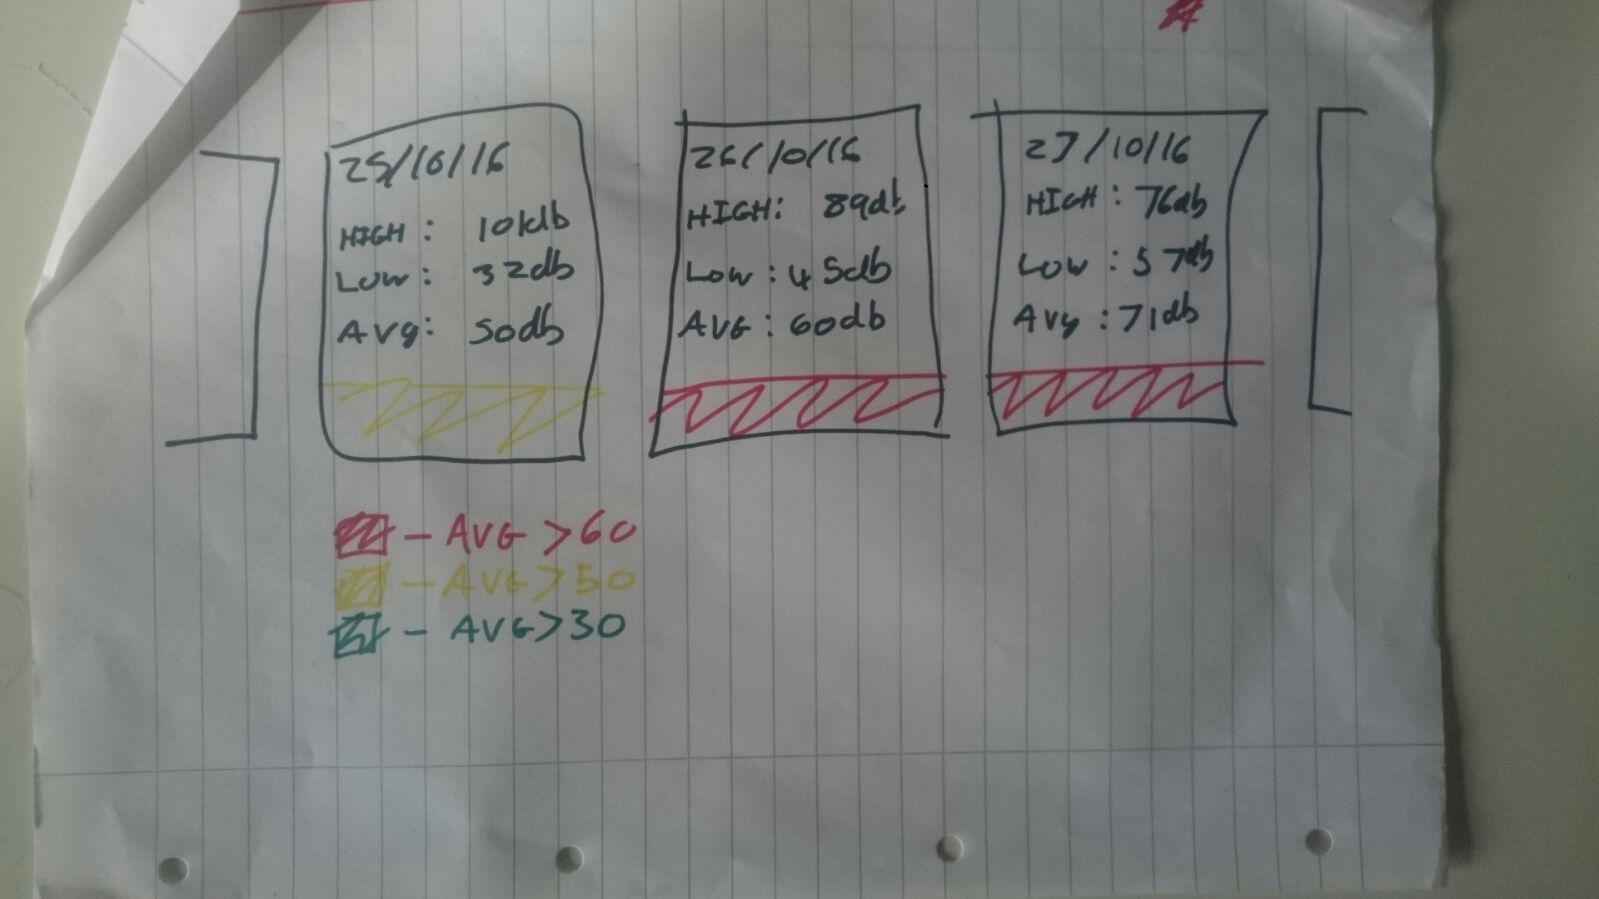 25/10/16
HIGH : 101db
LOW : 32db
AVg: 50db
26/10/16
HIGH: 89db
LOW : 45db
AVG : 60db
27/10/16
HIGH : 76db
LOW : 57db
AVg : 71db
- AVG >60
- AVG >50
- AVG >30